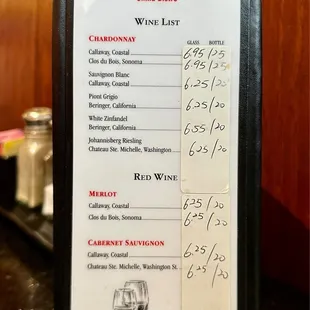 WINE LIST
CHARDONNAY GLASS BOTTLE
Callaway, Coastal 6.95/25
Clos du Bois, Sonoma 6.95/25
Sauvignon Blanc
Callaway, Coastal 6.25/20
Piont Grigio
Beringer, California 6.25/20
White Zinfandel
Beringer, California 6.55/20
Johannisberg Riesling
Chateau Ste. Michelle, Washington 6.25/20
RED WINE
MERLOT
Callaway, Coastal 6.25/20
Clos du Bois, Sonoma 6.25/20
CABERNET SAUVIGNON
Callaway, Coastal 6.25/20
Chateau Ste. Michelle, Washington St. 6.25/20